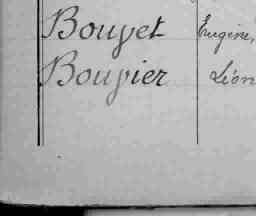 Bouyet Eugène,
Bouvier Léon